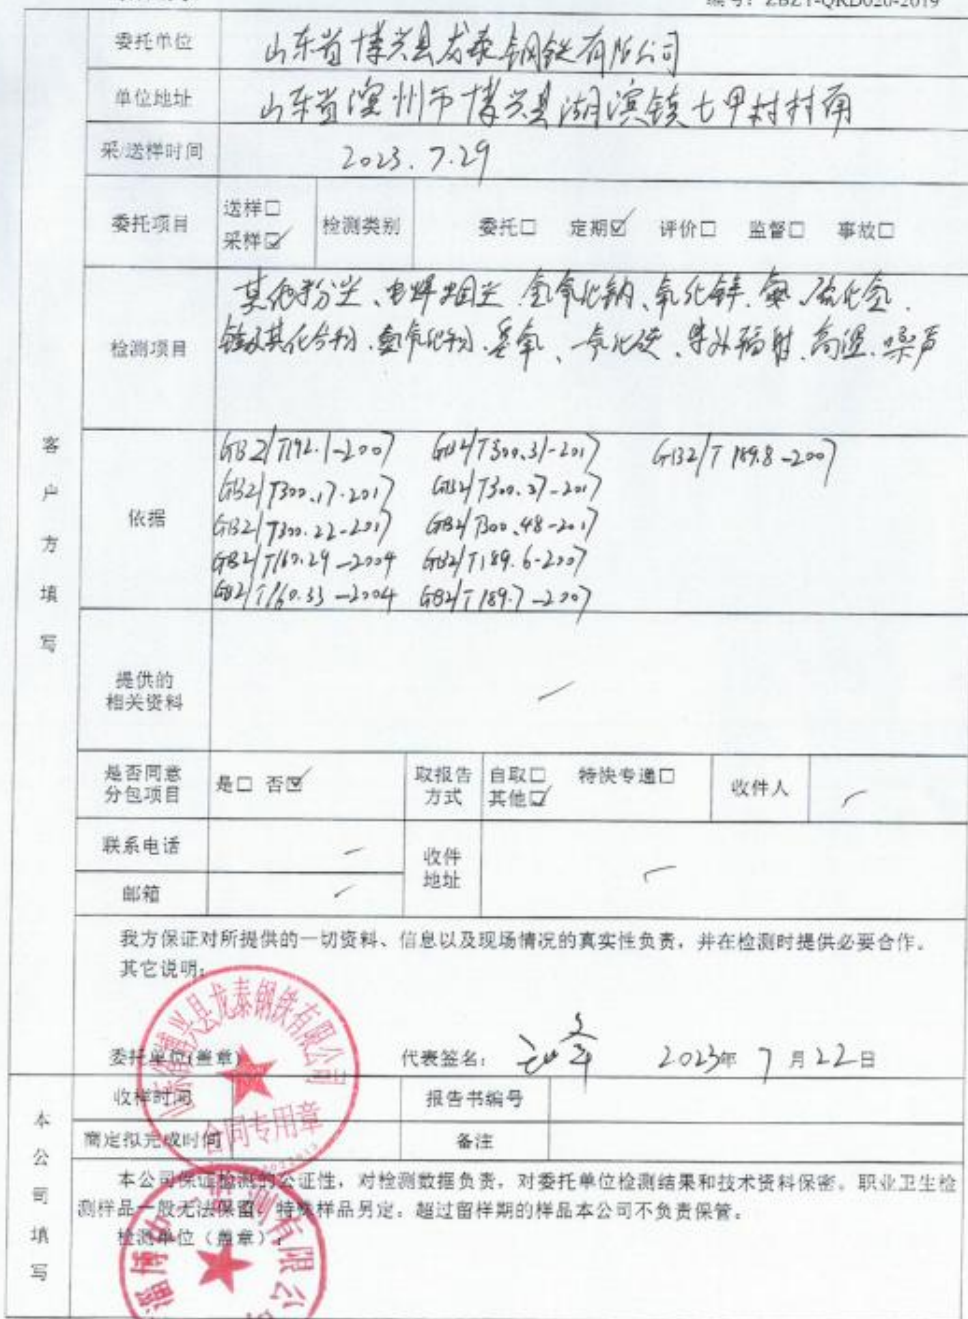 编号：ZBZY-QRD020-2019
委托单位 山东省博兴县龙泰钢铁有限公司
单位地址 山东省滨州市博兴县湖滨镇七甲村村南
采/送样时间 2023.7.29
委托项目 送样□ 采样☑ 检测类别 委托□ 定期☑ 评价□ 监督□ 事故□
检测项目 其他粉尘、电焊烟尘、氢氧化钠、氧化锌、氨、硫化氢、
锰及其化合物、氮氧化物、臭氧、一氧化碳、紫外辐射、高温、噪声
客户方填写
依据
GBZ/T192.1-2007 GBZ/T300.31-2017 GBZ/T189.8-2007
GBZ/T300.17-2017 GBZ/T300.37-2017
GBZ/T300.22-2017 GBZ/T300.48-2017
GBZ/T160.29-2004 GBZ/T189.6-2007
GBZ/T160.33-2004 GBZ/T189.7-2007
提供的
相关资料
是否同意
分包项目 是□ 否☑ 取报告
方式 自取□ 特快专递□
其他☑ 收件人
联系电话 收件
地址
邮箱
我方保证对所提供的一切资料、信息以及现场情况的真实性负责，并在检测时提供必要合作。
其它说明：
山东省博兴县龙泰钢铁有限公司
合同专用章
委托单位(盖章) 代表签名： 2023年 7月22日
本公司填写
收样时间 报告书编号
商定拟完成时间 备注
本公司保证检测的公证性，对检测数据负责，对委托单位检测结果和技术资料保密。职业卫生检
测样品一般无法保留，特殊样品另定；超过留样期的样品本公司不负责保管。
检测单位（盖章）：
淄博
测有限公